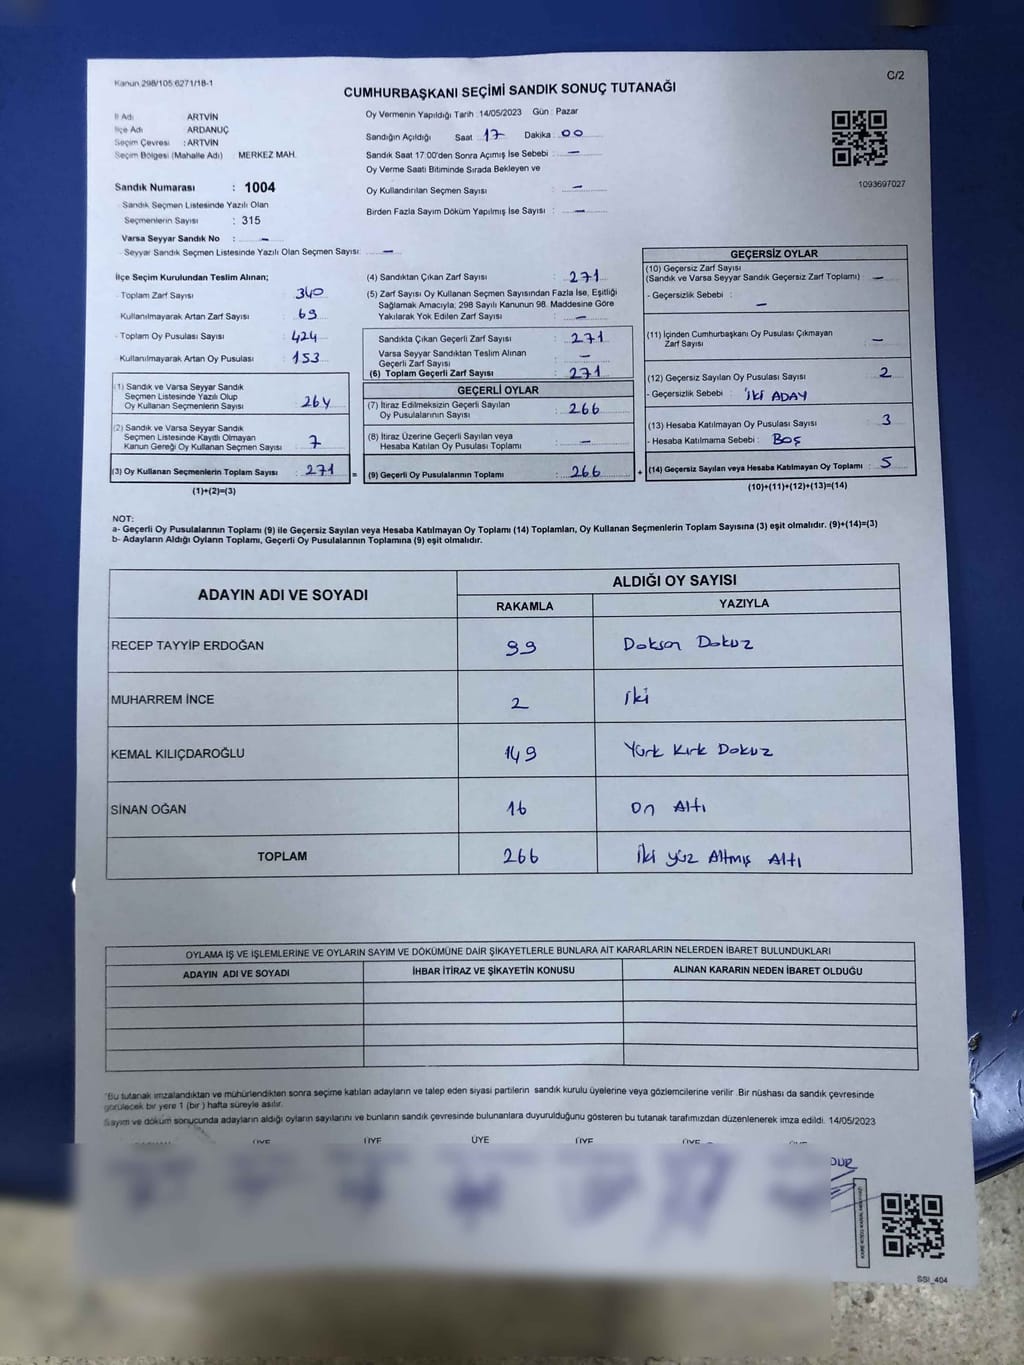 Kanun 298/105 6271/18-1
C/2
CUMHURBAŞKANI SEÇİMİ SANDIK SONUÇ TUTANAĞI
İl Adı ARTVİN
İlçe Adı ARDANUÇ
Seçim Çevresi : ARTVİN
Seçim Bölgesi (Mahalle Adı) MERKEZ MAH.
Sandık Numarası : 1004
Sandık Seçmen Listesinde Yazılı Olan
Seçmenlerin Sayısı : 315
Varsa Seyyar Sandık No : —
Seyyar Sandık Seçmen Listesinde Yazılı Olan Seçmen Sayısı: —
Oy Vermenin Yapıldığı Tarih : 14/05/2023 Gün : Pazar
Sandığın Açıldığı Saat 17 Dakika : 00
Sandık Saat 17:00'den Sonra Açımış İse Sebebi : —
Oy Verme Saati Bitiminde Sırada Bekleyen ve
Oy Kullandırılan Seçmen Sayısı : —
Birden Fazla Sayım Döküm Yapılmış İse Sayısı : —
1093697027
İlçe Seçim Kurulundan Teslim Alınan;
- Toplam Zarf Sayısı : 340
- Kullanılmayarak Artan Zarf Sayısı : 69
- Toplam Oy Pusulası Sayısı : 424
- Kullanılmayarak Artan Oy Pusulası : 153
(1) Sandık ve Varsa Seyyar Sandık
Seçmen Listesinde Yazılı Olup
Oy Kullanan Seçmenlerin Sayısı : 264
(2) Sandık ve Varsa Seyyar Sandık
Seçmen Listesinde Kayıtlı Olmayan
Kanun Gereği Oy Kullanan Seçmen Sayısı : 7
(3) Oy Kullanan Seçmenlerin Toplam Sayısı : 271
(1)+(2)=(3)
(4) Sandıktan Çıkan Zarf Sayısı : 271
(5) Zarf Sayısı Oy Kullanan Seçmen Sayısından Fazla İse, Eşitliği
Sağlamak Amacıyla; 298 Sayılı Kanunun 98. Maddesine Göre
Yakılarak Yok Edilen Zarf Sayısı : —
Sandıkta Çıkan Geçerli Zarf Sayısı : 271
Varsa Seyyar Sandıktan Teslim Alınan
Geçerli Zarf Sayısı : —
(6) Toplam Geçerli Zarf Sayısı : 271
GEÇERLİ OYLAR
(7) İtiraz Edilmeksizin Geçerli Sayılan
Oy Pusulalarının Sayısı : 266
(8) İtiraz Üzerine Geçerli Sayılan veya
Hesaba Katılan Oy Pusulası Toplamı : —
= (9) Geçerli Oy Pusulalarının Toplamı : 266
GEÇERSİZ OYLAR
(10) Geçersiz Zarf Sayısı
(Sandık ve Varsa Seyyar Sandık Geçersiz Zarf Toplamı) : —
- Geçersizlik Sebebi : —
(11) İçinden Cumhurbaşkanı Oy Pusulası Çıkmayan
Zarf Sayısı : —
(12) Geçersiz Sayılan Oy Pusulası Sayısı : 2
- Geçersizlik Sebebi : İKİ ADAY
(13) Hesaba Katılmayan Oy Pusulası Sayısı : 3
- Hesaba Katılmama Sebebi : BOŞ
+ (14) Geçersiz Sayılan veya Hesaba Katılmayan Oy Toplamı : 5
(10)+(11)+(12)+(13)=(14)
NOT:
a- Geçerli Oy Pusulalarının Toplamı (9) ile Geçersiz Sayılan veya Hesaba Katılmayan Oy Toplamı (14) Toplamları, Oy Kullanan Seçmenlerin Toplam Sayısına (3) eşit olmalıdır. (9)+(14)=(3)
b- Adayların Aldığı Oyların Toplamı, Geçerli Oy Pusulalarının Toplamına (9) eşit olmalıdır.
ADAYIN ADI VE SOYADI ALDIĞI OY SAYISI
RAKAMLA YAZIYLA
RECEP TAYYİP ERDOĞAN 99 Doksan Dokuz
MUHARREM İNCE 2 iki
KEMAL KILIÇDAROĞLU 149 Yürk Kırk Dokuz
SİNAN OĞAN 16 On Altı
TOPLAM 266 İki yüz Altmış Altı
OYLAMA İŞ VE İŞLEMLERİNE VE OYLARIN SAYIM VE DÖKÜMÜNE DAİR ŞİKAYETLERLE BUNLARA AİT KARARLARIN NELERDEN İBARET BULUNDUKLARI
ADAYIN ADI VE SOYADI İHBAR İTİRAZ VE ŞİKAYETİN KONUSU ALINAN KARARIN NEDEN İBARET OLDUĞU
*Bu tutanak imzalandıktan ve mühürlendikten sonra seçime katılan adayların ve talep eden siyasi partilerin sandık kurulu üyelerine veya gözlemcilerine verilir. Bir nüshası da sandık çevresinde
görülecek bir yere 1 (bir) hafta süreyle asılır.
Sayım ve döküm sonucunda adayların aldığı oyların sayılarını ve bunların sandık çevresinde bulunanlara duyurulduğunu gösteren bu tutanak tarafımızdan düzenlenerek imza edildi. 14/05/2023
ÜYE ÜYE ÜYE ÜYE ÜYE
SSI_404